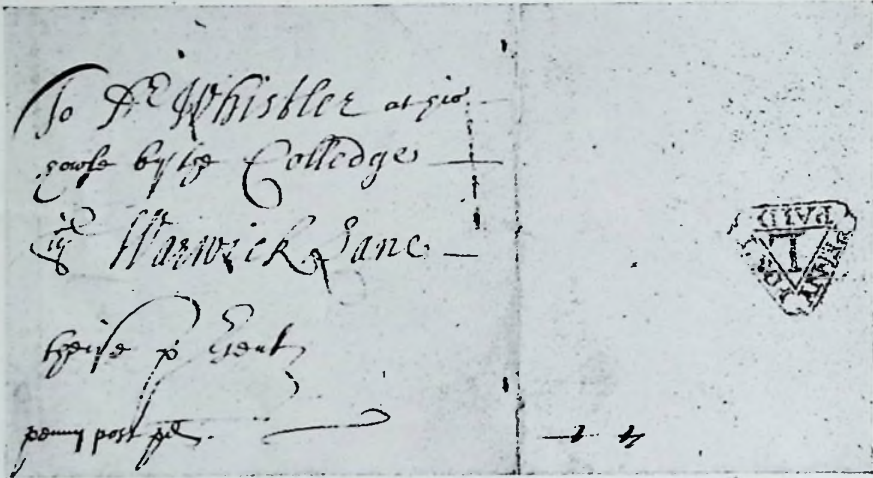 To Dr Whistler at his
howse by the Colledge
in Warwick Lane
these p
penny post pd
PENNY
POST
PAID
L